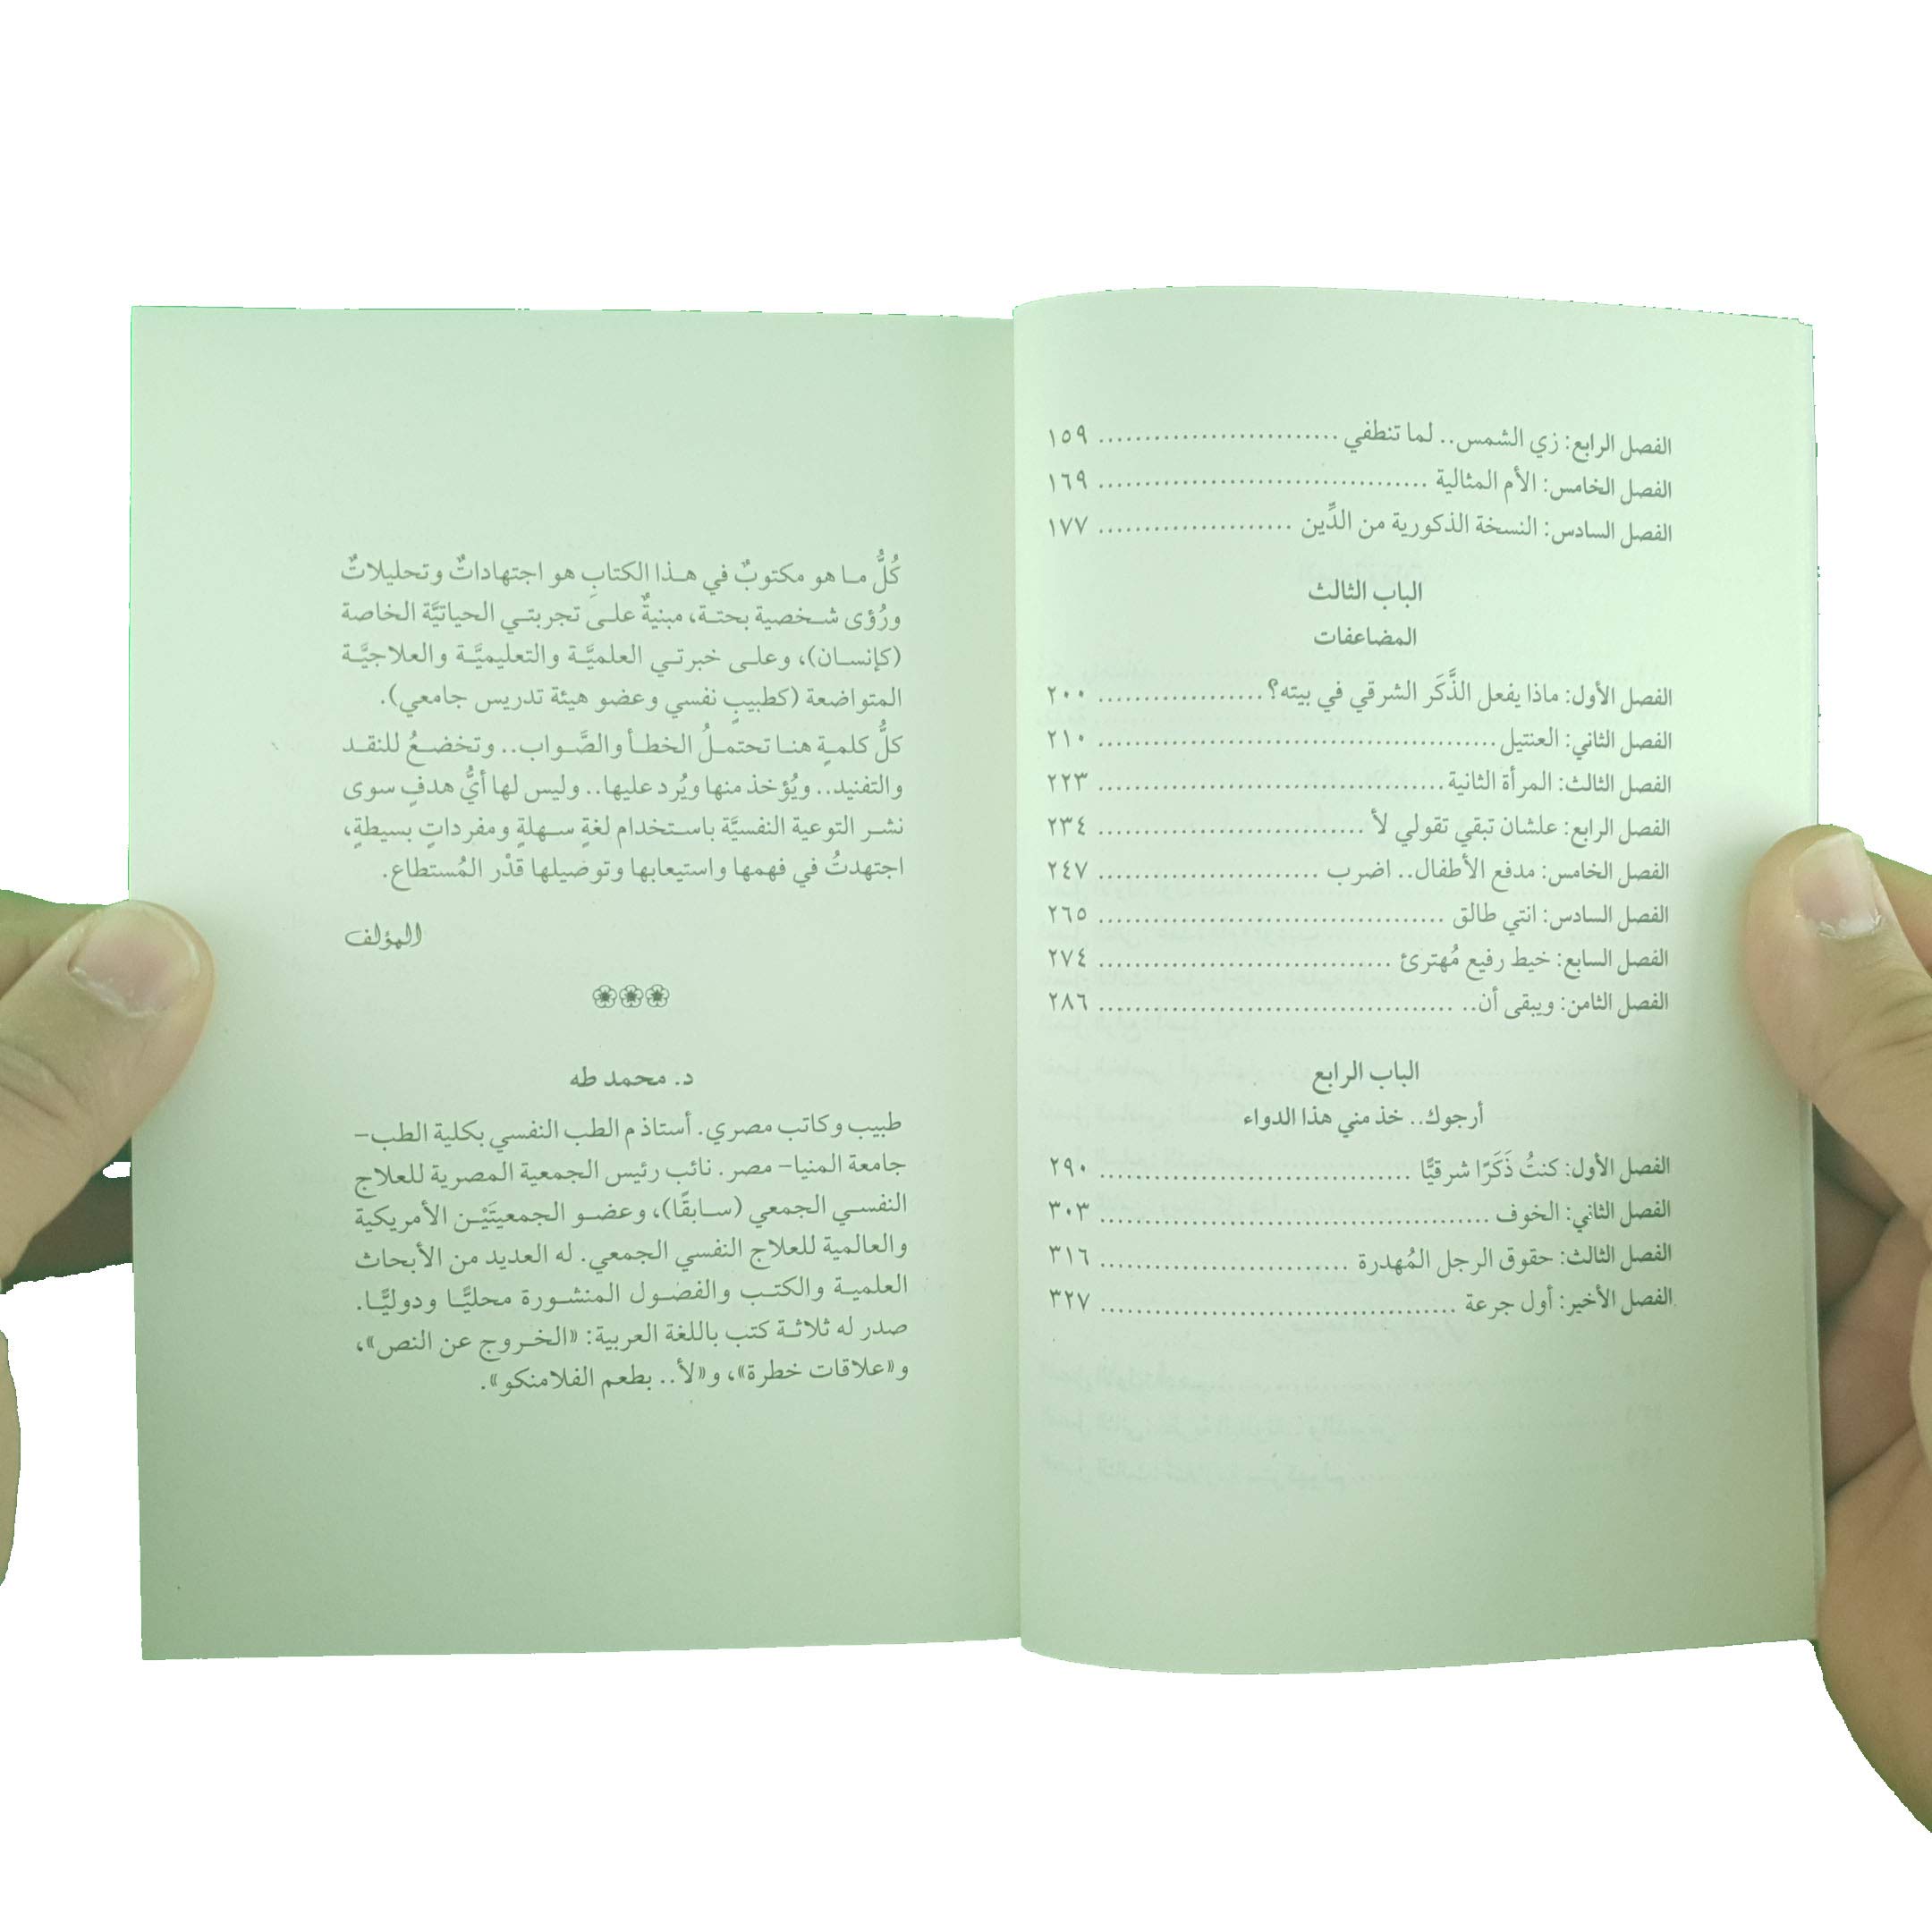 الفصل الرابع: زي الشمس.. لما تنطفي ........................... ١٥٩
الفصل الخامس: الأم المثالية ..................................... ١٦٩
الفصل السادس: النسخة الذكورية من الدِّين ...................... ١٧٧
الباب الثالث
المضاعفات
الفصل الأول: ماذا يفعل الذَّكَر الشرقي في بيته؟................... ٢٠٠
الفصل الثاني: العنتيل............................................. ٢١٠
الفصل الثالث: المرأة الثانية....................................... ٢٢٣
الفصل الرابع: علشان تبقي تقولي لأ .............................. ٢٣٤
الفصل الخامس: مدفع الأطفال.. اضرب ......................... ٢٤٧
الفصل السادس: انتي طالق ....................................... ٢٦٥
الفصل السابع: خيط رفيع مُهترئ ................................. ٢٧٤
الفصل الثامن: ويبقى أن.. ........................................ ٢٨٦
الباب الرابع
أرجوك.. خذ مني هذا الدواء
الفصل الأول: كنتُ ذَكَرًا شرقيًّا ................................... ٢٩٠
الفصل الثاني: الخوف ............................................ ٣٠٣
الفصل الثالث: حقوق الرجل المُهدرة ............................ ٣١٦
الفصل الأخير: أول جرعة ........................................ ٣٢٧
كُلُّ ما هو مكتوبٌ في هذا الكتابِ هو اجتهاداتٌ وتحليلاتٌ
ورُؤى شخصية بحتة، مبنيةٌ على تجربتي الحياتيَّة الخاصة
(كإنسان)، وعلى خبرتي العلميَّة والتعليميَّة والعلاجيَّة
المتواضعة (كطبيبٍ نفسي وعضو هيئة تدريس جامعي).
كلُّ كلمةٍ هنا تحتملُ الخطأ والصَّواب.. وتخضعُ للنقد
والتفنيد.. ويُؤخذ منها ويُرد عليها.. وليس لها أيُّ هدفٍ سوى
نشر التوعية النفسيَّة باستخدام لغةٍ سهلةٍ ومفرداتٍ بسيطةٍ،
اجتهدتُ في فهمها واستيعابها وتوصيلها قدْر المُستطاع.
المؤلف
د. محمد طه
طبيب وكاتب مصري. أستاذ م الطب النفسي بكلية الطب–
جامعة المنيا– مصر. نائب رئيس الجمعية المصرية للعلاج
النفسي الجمعي (سابقًا)، وعضو الجمعيتَيْن الأمريكية
والعالمية للعلاج النفسي الجمعي. له العديد من الأبحاث
العلمية والكتب والفصول المنشورة محليًّا ودوليًّا.
صدر له ثلاثة كتب باللغة العربية: «الخروج عن النص»،
و«علاقات خطرة»، و«لأ.. بطعم الفلامنكو».